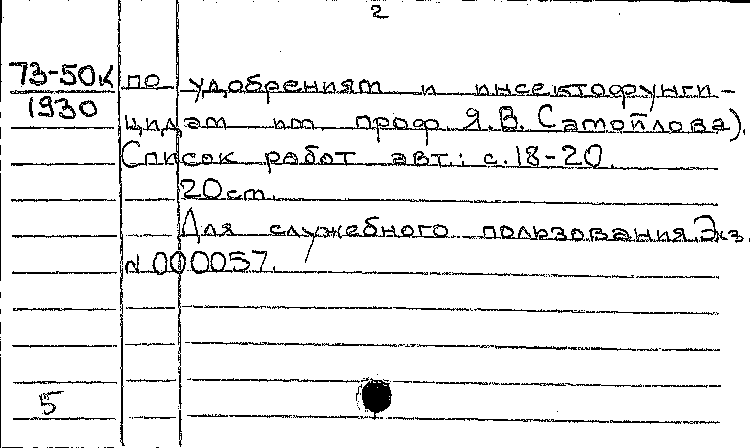 2
73-50к по удобрениям и инсектофунги-
1930
цидам им. проф Я.В. Самойлова).
Список работ авт.: с.18-20.
20см.
Для служебного пользования. Экз.
№000057.
5